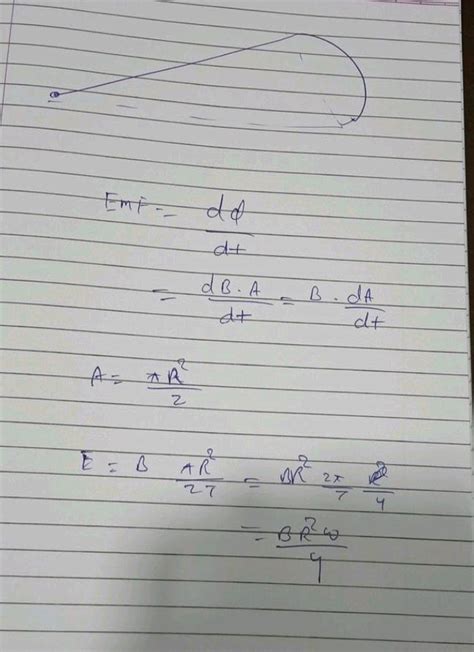 EmF = dφ/dt
= dB·A/dt = B · dA/dt
A = πR²/2
E = B πR²/2T = BR² 2π/T /4
= BR²ω/4